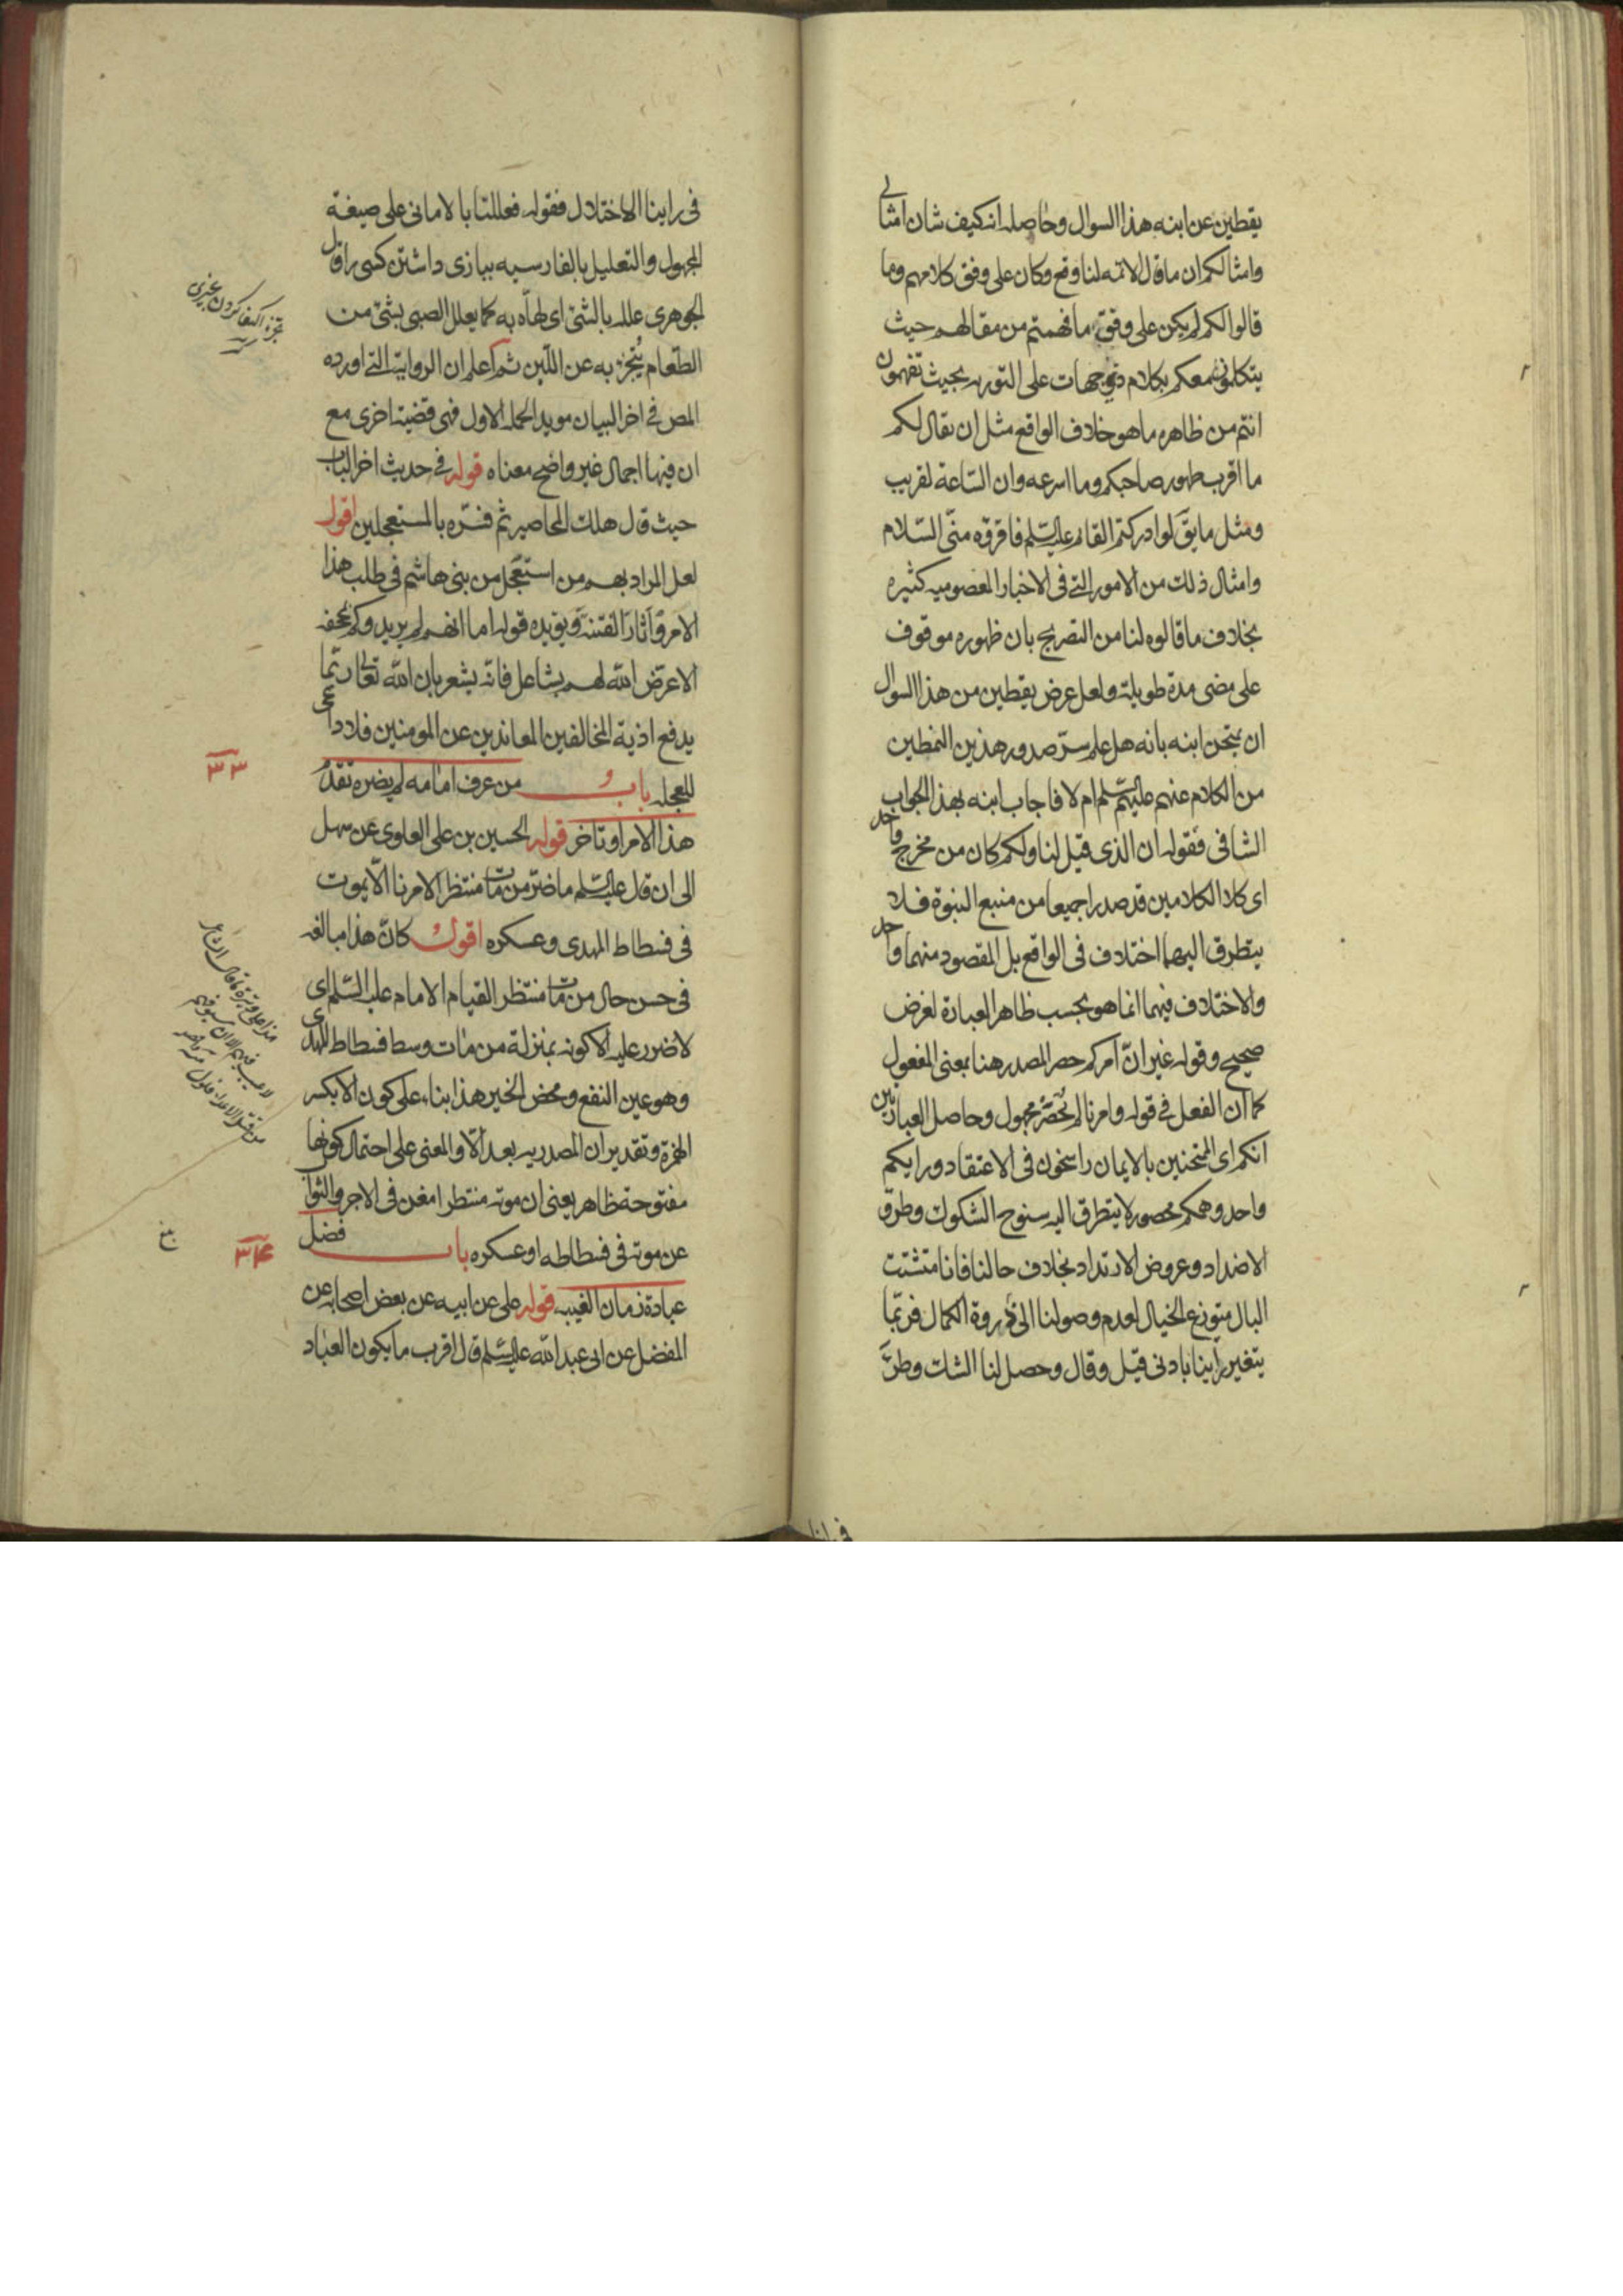 يقطين عن ابنه هذا السوال وحاصله انه كيف شان امثالي
وامثالكم ان ما قال الائمه لنا وقع وكان على وفق كلامهم وما
قالوا لكم لم يكن على وفق ما فهمتم من مقالهم حيث
يتكلمون معكم بكلام ذي جهات على التوريه بحيث تفهمون
انتم من ظاهره ما هو خلاف الواقع مثل ان يقال لكم
ما اقرب ظهور صاحبكم وما اسرعه وان الساعة لقريب
ومثل ما يق لو ادركتم القائم عليه السلم فاقرؤه منّي السّلام
وامثال ذلك من الامور التي في الاخبار المعصوميه كثيره
بخلاف ما قالوه لنا من التصريح بان ظهوره موقوف
على مضى مدة طويلة ولعل غرض يقطين من هذا السوال
ان يمتحن ابنه بانه هل علم سرّ صدور هذين النمطين
من الكلام عنهم عليهم السّلم ام لا فاجاب ابنه بهذا الجواب
الشافى فقوله ان الذى قيل لنا ولكم كان من مخرج واحد
اى كلا الكلامين قد صدرا جميعا من منبع النبوة فلا
يتطرق اليهما اختلاف فى الواقع بل المقصود منهما واحد
والاختلاف فيهما انما هو بحسب ظاهر العبارة لغرض
صحيح وقوله غير انّ امركم حصر المصدر هنا بمعنى المفعول
كما ان الفعل في قوله وامرنا لم يُحْضَرْ مجهول وحاصل العبارتين
انكم اى الممتحنين بالايمان راسخون فى الاعتقاد ورايكم
واحد وهمكم محصور لا يتطرق اليه سنوح الشكوك وطرق
الاضداد وعروض الارتداد بخلاف حالنا فانا متشتت
البال متوزع الخيال لعدم وصولنا الى ذروة الكمال فربّما
يتغير رأينا بادنى قيل وقال وحصل لنا الشك وطرَّ
فى راينا
فى راينا الاختلال فقوله فعللنا بالامانى على صيغة
المجهول والتعليل بالفارسيه ببازى داشتن كسى را وقال
الجوهرى علله بالشئ اى لهّاه به كما يعلل الصبى بشئ من
الطّعام يُتجزّء به عن اللّبن ثم اعلم ان الرواية التي اورده
المص في اخر البيان مويدا لحمله الاول فهى قضية اخرى مع
ان فيها اجمال غير واضح معناه قوله في حديث اخر الباب
حيث قال هلك المحاصير ثم فسّره بالمستعجلين اقول
لعل المراد بهم من استعجل من بنى هاشم فى طلب هذا
الامر وآثار الفتنة ويؤيده قوله اما انهم لم يريدوكم بمجحفه
الا عرض الله لهم بشاغل فانه يشعر بان الله تعالى ربّما
يدفع اذية المخالفين المعاندين عن المومنين فلا داعى
للعجله باب و من عرف امامه لم يضره تقدّم
هذا الامر او تاخر قوله الحسين بن على العلوى عن سهل
الى ان قال عليه السّلم ما ضرّ من مات منتظرا لامرنا الّا يموت
فى فسطاط المهدى وعسكره اقول كانّ هذا مبالغه
فى حسن حال من مات منتظر القيام الامام عليه السّلم اى
لا ضرر عليه الا كونه بمنزلة من مات وسط فسطاط المهدى
وهو عين النفع ومحض الخير هذا بناء على كون الا بكسر
الهمزة وتقدير ان المصدريه بعد الّا والمعنى على احتمال كونها
مفتوحة ظاهر يعنى ان موته منتظرا مغن فى الاجر والثواب
عن موته فى فسطاطه او عسكره باب فضل
عبادة زمان الغيبه قوله على عن ابيه عن بعض اصحابه عن
المفضل عن ابى عبد الله عليه السّلم قال اقرب ما يكون العباد
تجزّء اكتفا كردن بچيزى
٣٣
٣٤